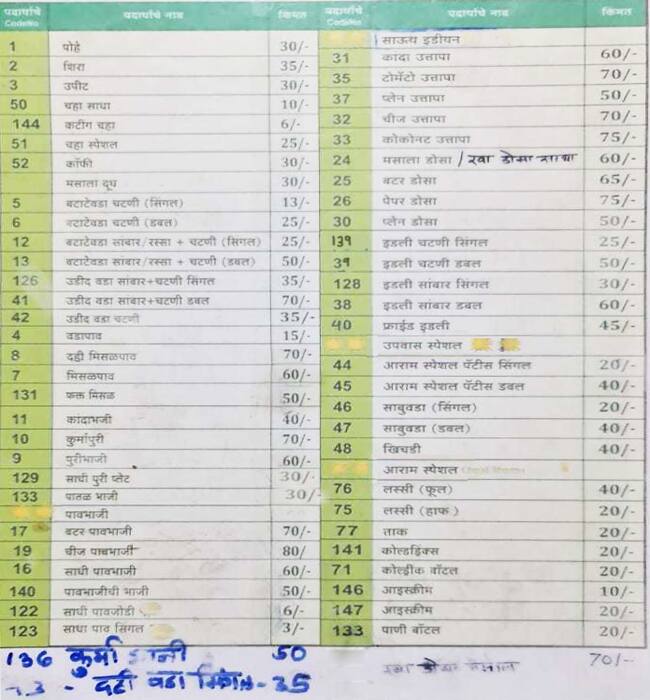 पदार्थाचे CodeNo पदार्थाचे नाव किंमत
1 पोहे 30/-
2 शिरा 35/-
3 उपीट 30/-
50 चहा साधा 10/-
144 कटींग चहा 6/-
51 चहा स्पेशल 25/-
52 कॉफी 30/-
मसाला दूध 30/-
5 बटाटेवडा चटणी (सिंगल) 13/-
6 बटाटेवडा चटणी (डबल) 25/-
12 बटाटेवडा सांबार/रस्सा + चटणी (सिंगल) 25/-
13 बटाटेवडा सांबार/रस्सा + चटणी (डबल) 50/-
126 उडीद वडा सांबार+चटणी सिंगल 35/-
41 उडीद वडा सांबार+चटणी डबल 70/-
42 उडीद वडा चटणी 35/-
4 वडापाव 15/-
8 दही मिसळपाव 70/-
7 मिसळपाव 60/-
131 फक्त मिसळ 50/-
11 कांदाभजी 40/-
10 कुर्मापुरी 70/-
9 पुरीभाजी 60/-
129 साधी पुरी प्लेट 30/-
133 पातळ भाजी 30/-
पावभाजी
17 बटर पावभाजी 70/-
19 चीज पावभाजी 80/
16 साधी पावभाजी 60/-
140 पावभाजीची भाजी 50/-
122 साधी पावजोडी 6/-
123 साधा पाव सिंगल 3/-
136 कुर्मा 50
3 - दही वडा सिंगल - 35
पदार्थाचे CodeNo पदार्थाचे नाव किंमत
साऊथ इडीयन
31 कांदा उत्तापा 60/-
35 टोमॅटो उत्तापा 70/-
37 प्लेन उत्तापा 50/-
32 चीज उत्तापा 70/-
33 कोकोनट उत्तापा 75/-
24 मसाला डोसा / रवा डोसा साधा 60/-
25 बटर डोसा 65/-
26 पेपर डोसा 75/-
30 प्लेन डोसा 50/-
139 इडली चटणी सिंगल 25/-
39 इडली चटणी डबल 50/-
128 इडली सांबार सिंगल 30/-
38 इडली सांबार डबल 60/-
40 फ्राईड इडली 45/-
उपवास स्पेशल
44 आराम स्पेशल पॅटीस सिंगल 20/-
45 आराम स्पेशल पॅटीस डबल 40/-
46 साबुवडा (सिंगल) 20/-
47 साबुवडा (डबल) 40/-
48 खिचडी 40/-
आराम स्पेशल
76 लस्सी (फूल) 40/-
75 लस्सी (हाफ) 20/-
77 ताक 20/-
141 कोल्डड्रिंक्स 20/-
71 कोल्ड्रींक बॉटल 20/-
146 आइस्क्रीम 10/-
147 आइस्क्रीम 20/-
133 पाणी बॉटल 20/-
रवा डोसा मसाला 70/-